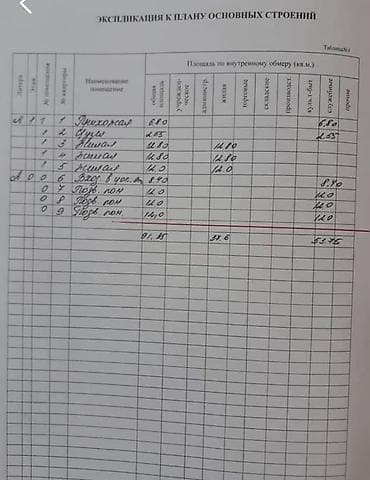 ЭКСПЛИКАЦИЯ К ПЛАНУ ОСНОВНЫХ СТРОЕНИЙ
Таблица№1
Литера этаж № помещения № квартиры Наименование помещения Площадь по внутреннему обмеру (кв.м.)
общая площадь учрежденческое администр. жилая торговые складские производст. культ-быт служебные прочие
А 1 1 1 Прихожая 6.80 6.80
1 2 2.55 2.55
1 3 Жилая 12.80 12.80
1 4 Жилая 12.80 12.80
1 5 Жилая 12.0 12.0
А 0 0 6 Вход в 8.40 8.40
0 7 Подв. пом 12.0 12.0
0 8 Подв. пом 12.0 12.0
0 9 Подв. пом. 12.0
91.35 37.6 53.75